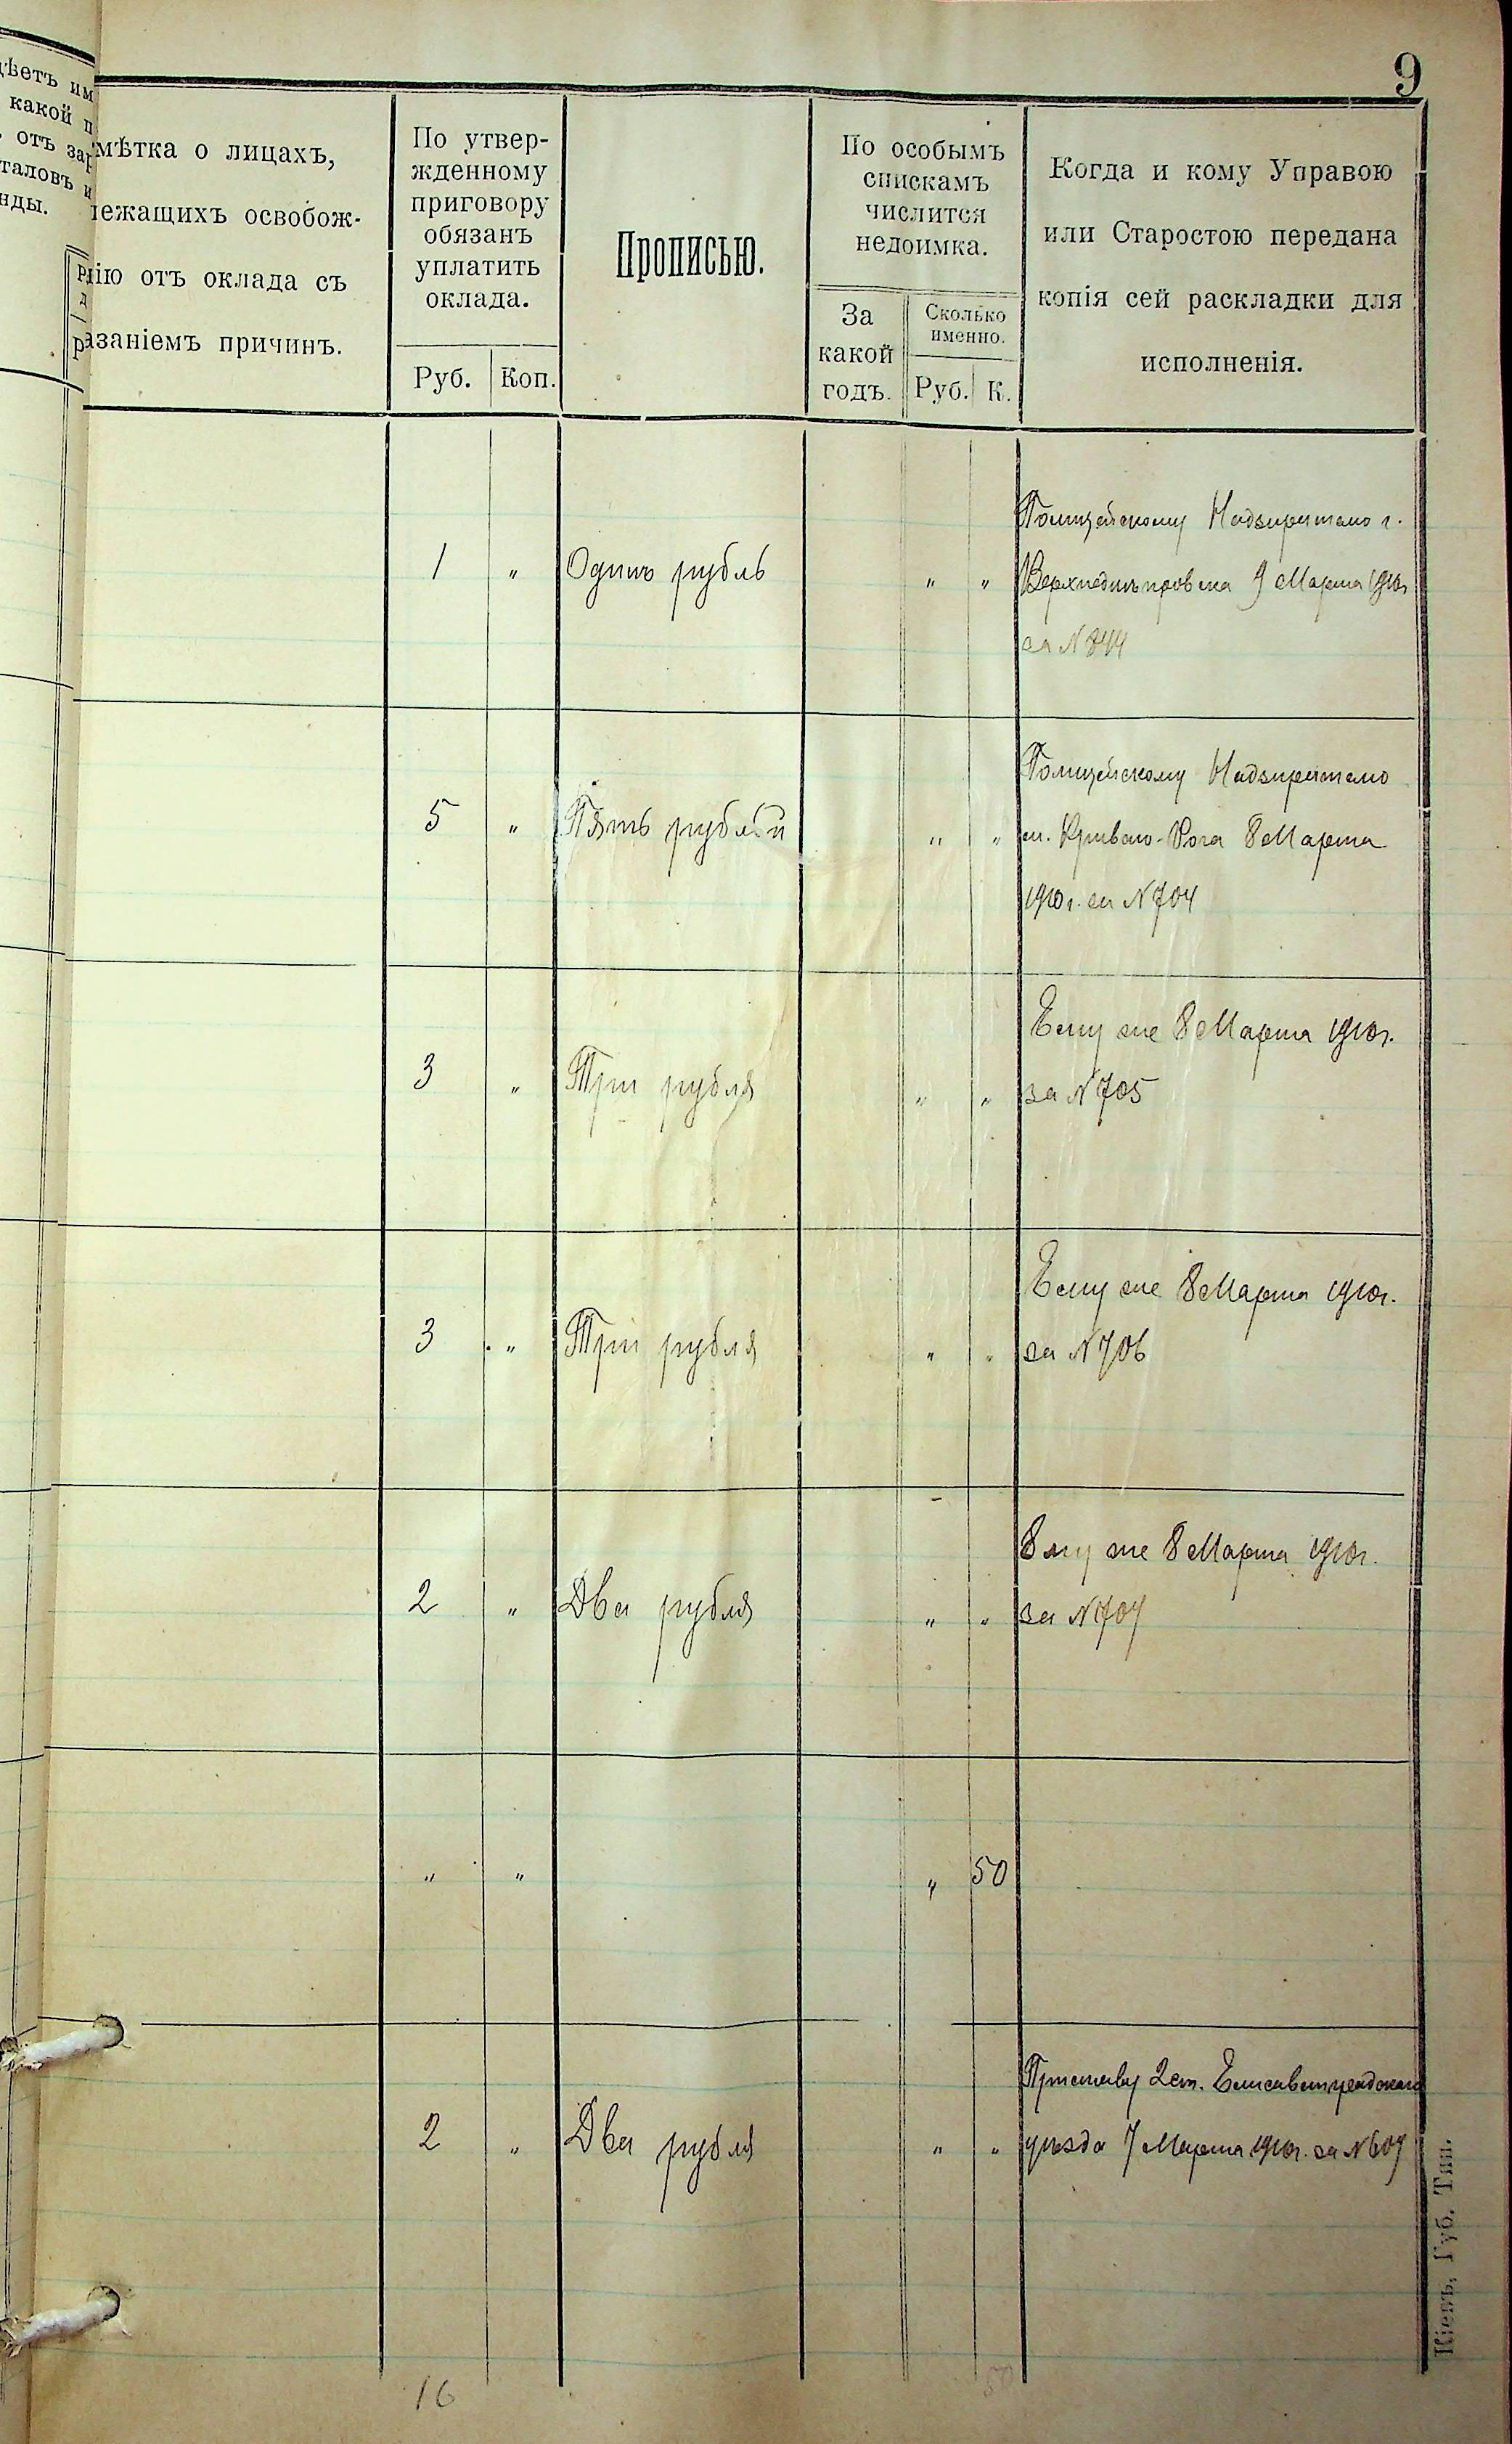 9
дѣетъ им
какой п
отъ зар
таловъ и
нды.
мѣтка о лицахъ,
лежащихъ освобож-
нію отъ оклада съ
азаніемъ причинъ.
По утвер-
жденному
приговору
обязанъ
уплатить
оклада.
Руб. Коп.
Прописью.
По особымъ
спискамъ
числится
недоимка.
За
какой
годъ.
Сколько
именно.
Руб. К.
Когда и кому Управою
или Старостою передана
копія сей раскладки для
исполненія.
Полицейскому Надзирателю г.
1 " Одинъ рубль " " Верхнеднѣпровска 9 Марта 1910г
за N 844
Полицейскому Надзирателю
5 " Пять рублей " " м. Кривого-Рога 8 Марта
1910 г. за N 704
Ему же 8 Марта 1910г.
3 " Три рубля " " за N 705
Ему же 8 Марта 1910г.
3 " Три рубля " " за N 706
Ему же 8 Марта 1910г.
2 " Два рубля " " за N 707
" " " 50
Приставу 2 ст. Елисаветградскаго
2 " Два рубля " " уѣзда 7 Марта 1910г. за N 607
16 50
Кіевъ, Губ. Тип.